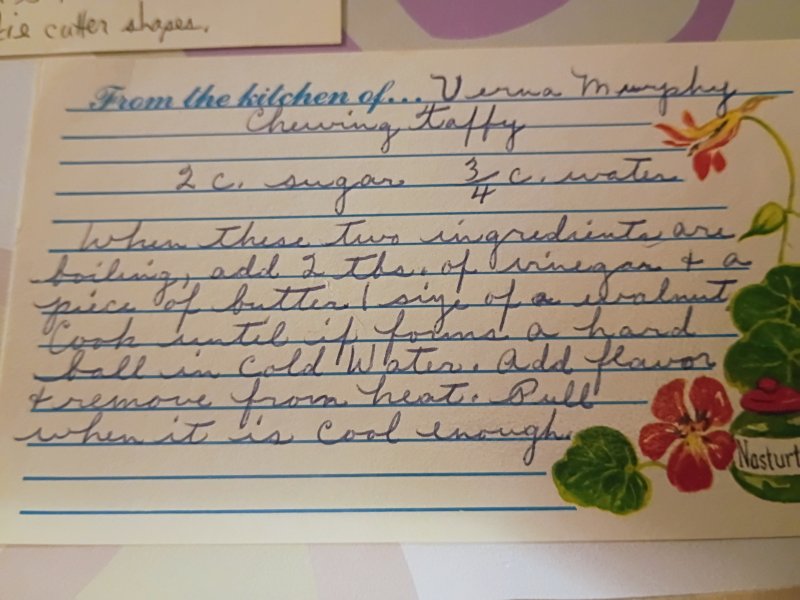 kie cutter shapes.
From the kitchen of... Verna Murphy
Chewing Taffy
2 c. sugar 3/4 c. water
When these two ingredients are
boiling, add 2 tbs. of vinegar & a
piece of butter 1 size of a walnut
Cook until if forms a hard
ball in Cold Water. Add flavor
& remove from heat. Pull
when it is cool enough.
Nasturt